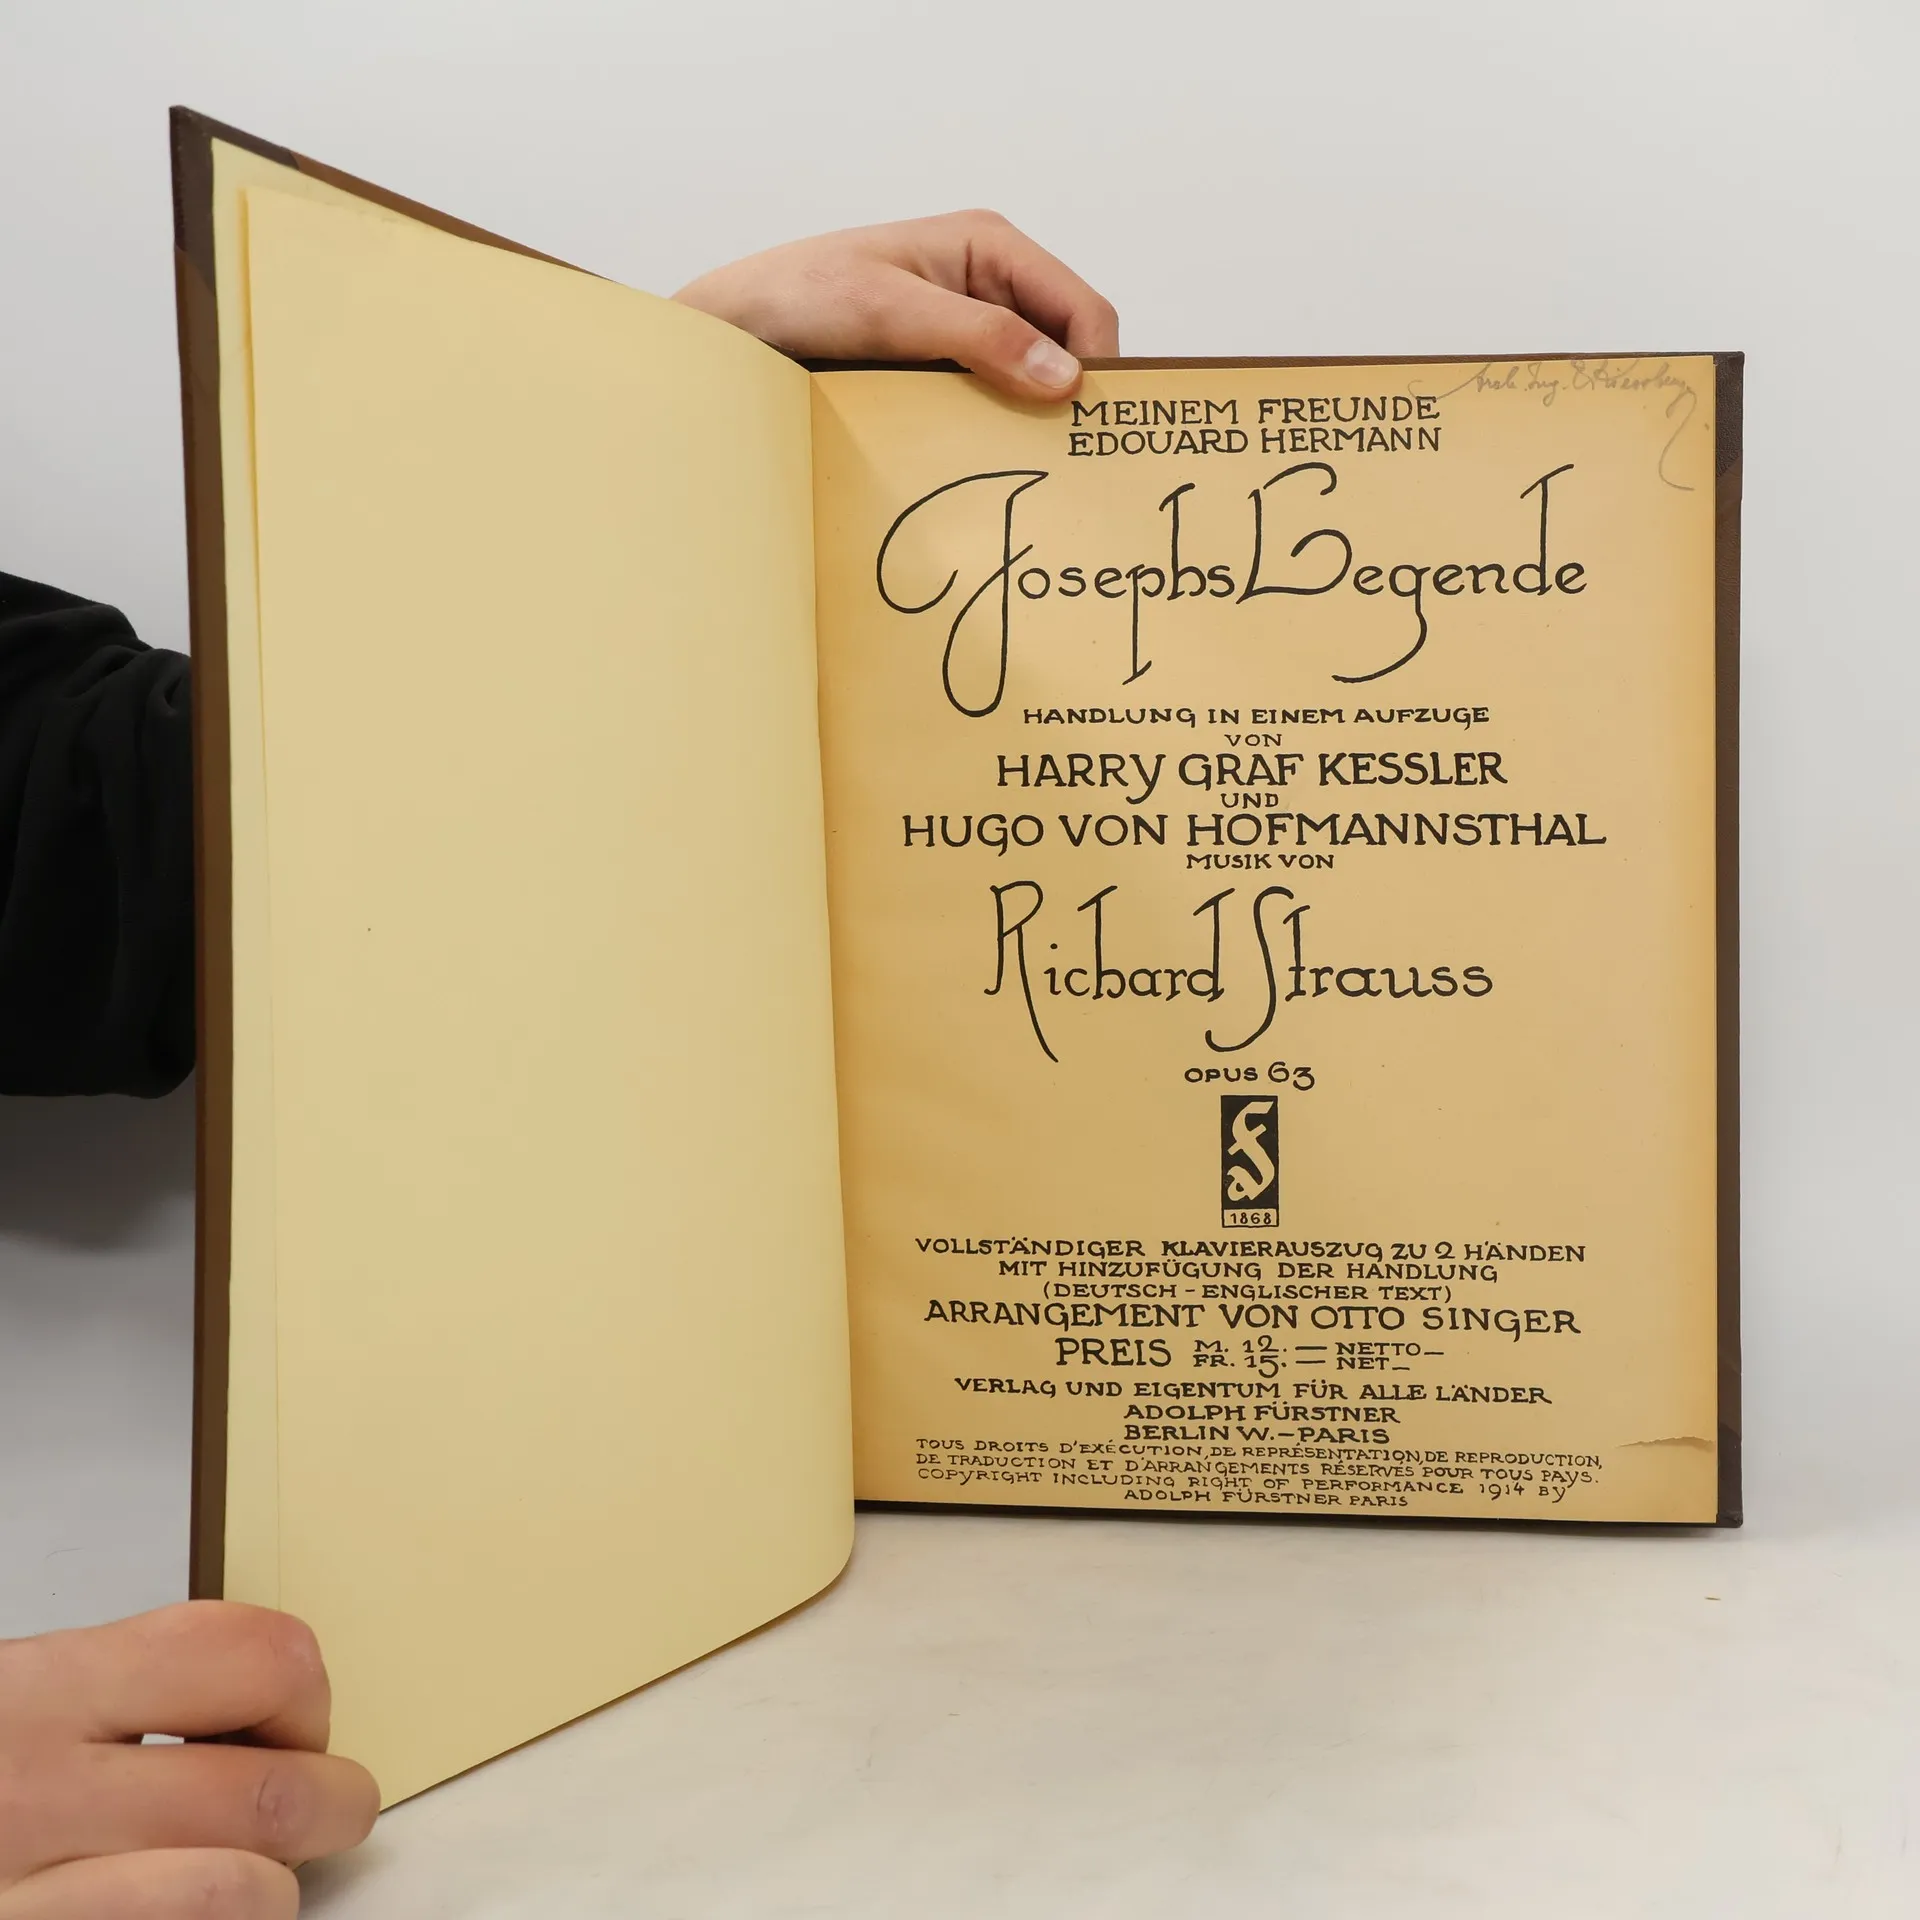 MEINEM FREUNDE
EDOUARD HERMANN
Josephs Legende
HANDLUNG IN EINEM AUFZUGE
VON
HARRY GRAF KESSLER
UND
HUGO VON HOFMANNSTHAL
MUSIK VON
Richard Strauss
OPUS 63
1868
VOLLSTÄNDIGER KLAVIERAUSZUG ZU 2 HÄNDEN
MIT HINZUFÜGUNG DER HANDLUNG
(DEUTSCH - ENGLISCHER TEXT)
ARRANGEMENT VON OTTO SINGER
PREIS M. 12. — NETTO —
FR. 15. — NET —
VERLAG UND EIGENTUM FÜR ALLE LÄNDER
ADOLPH FÜRSTNER
BERLIN W. – PARIS
TOUS DROITS D'EXÉCUTION, DE REPRÉSENTATION, DE REPRODUCTION,
DE TRADUCTION ET D'ARRANGEMENTS RÉSERVÉS POUR TOUS PAYS.
COPYRIGHT INCLUDING RIGHT OF PERFORMANCE 1914 BY
ADOLPH FÜRSTNER PARIS